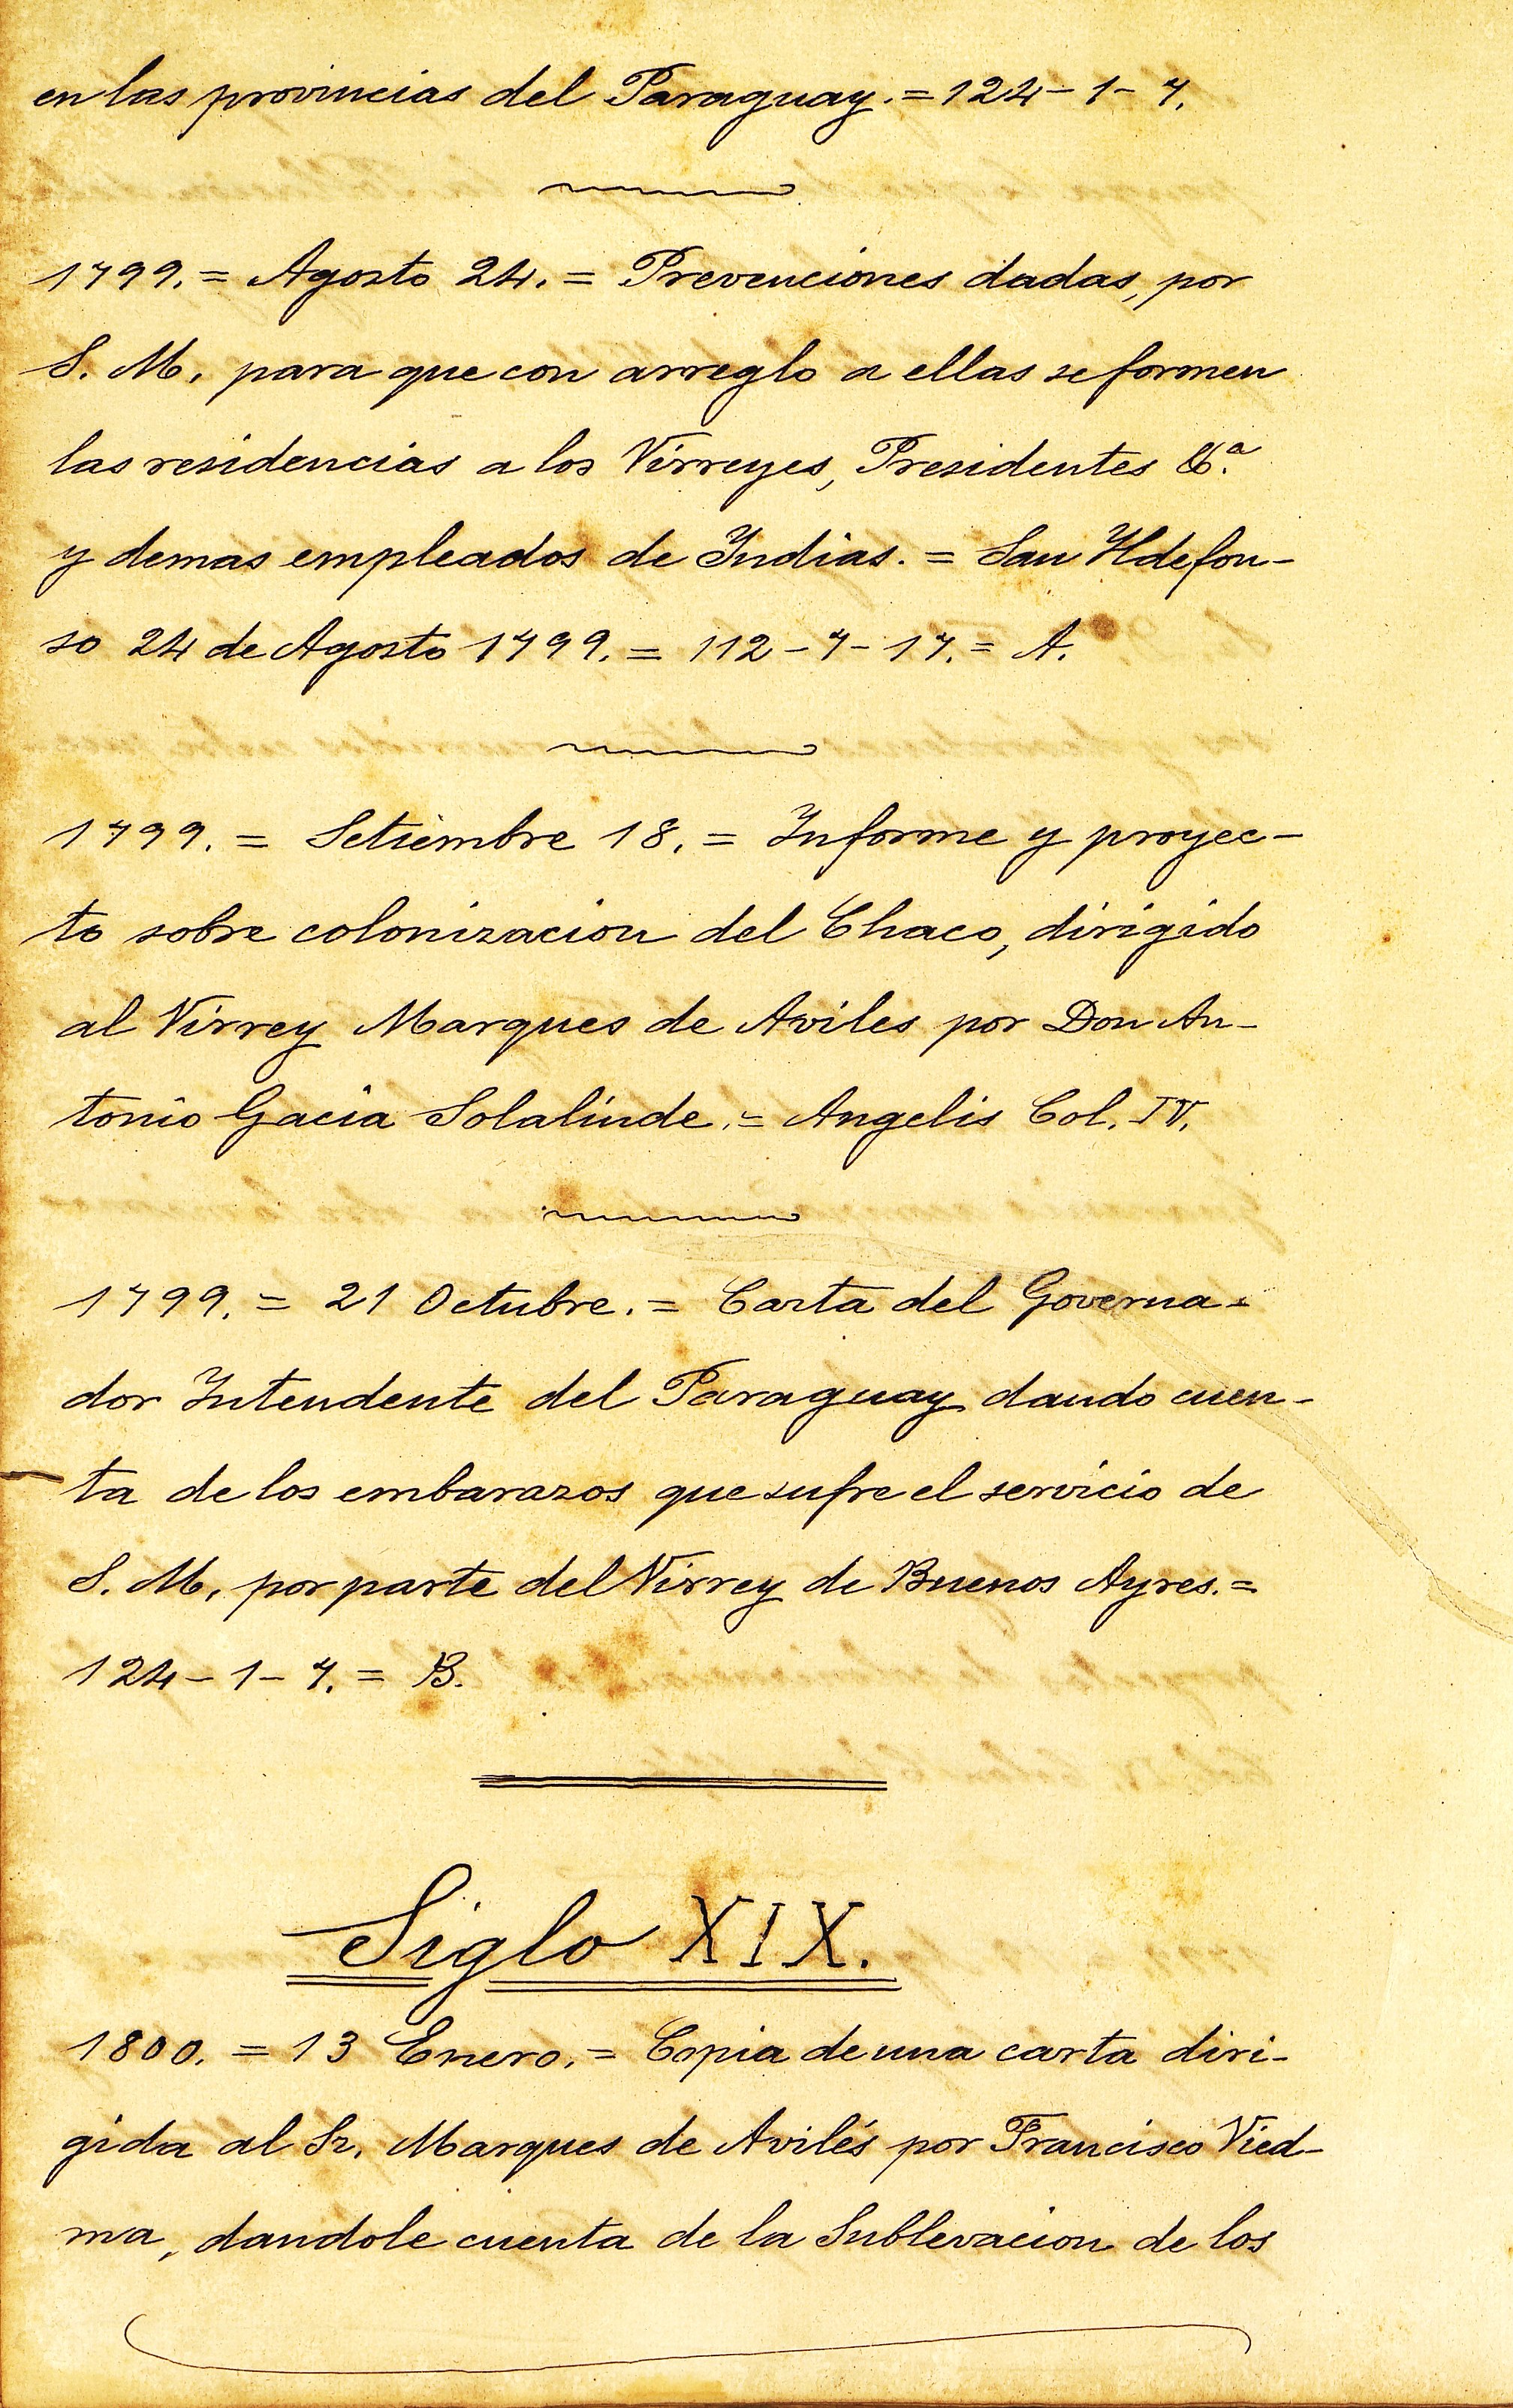 en las provincias del Paraguay. = 124 - 1 - 7.
1799. = Agosto 24. = Prevenciones dadas, por
S. M. para que con arreglo a ellas se formen
las residencias a los Virreyes, Presidentes &ª.
y demas empleados de Indias. = San Ildefon-
so 24 de Agosto 1799. = 112 - 7 - 17. = A.
1799. = Setiembre 18. = Informe y proyec-
to sobre colonizacion del Chaco, dirigido
al Virrey Marques de Aviles por Don An-
tonio Gacia Solalinde. = Angelis Col. IV.
1799. = 21 Octubre. = Carta del Governa-
dor Intendente del Paraguay dando cuen-
ta de los embarazos que sufre el servicio de
S. M. por parte del Virrey de Buenos Ayres. =
124 - 1 - 7. = B.
Siglo XIX.
1800. = 13 Enero. = Copia de una carta diri-
gida al Sr. Marques de Avilés por Francisco Vied-
ma, dandole cuenta de la Sublevacion de los